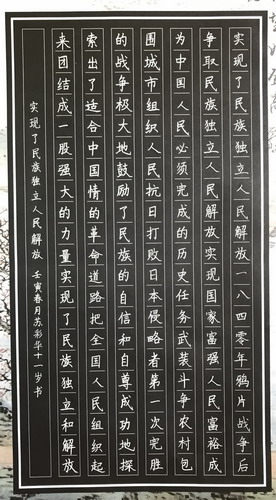 实现了民族独立人民解放一八四零年鸦片战争后
争取民族独立人民解放实现国家富强人民富裕成
为中国人民必须完成的历史任务武装斗争农村包
围城市组织人民抗日打败日本侵略者第一次完胜
的战争极大地鼓励了民族的自信和自尊成功地探
索出了适合中国情的革命道路把全国人民组织起
来团结成一股强大的力量实现了民族独立和解放
实现了民族独立人民解放 壬寅春月苏彩华十一岁书